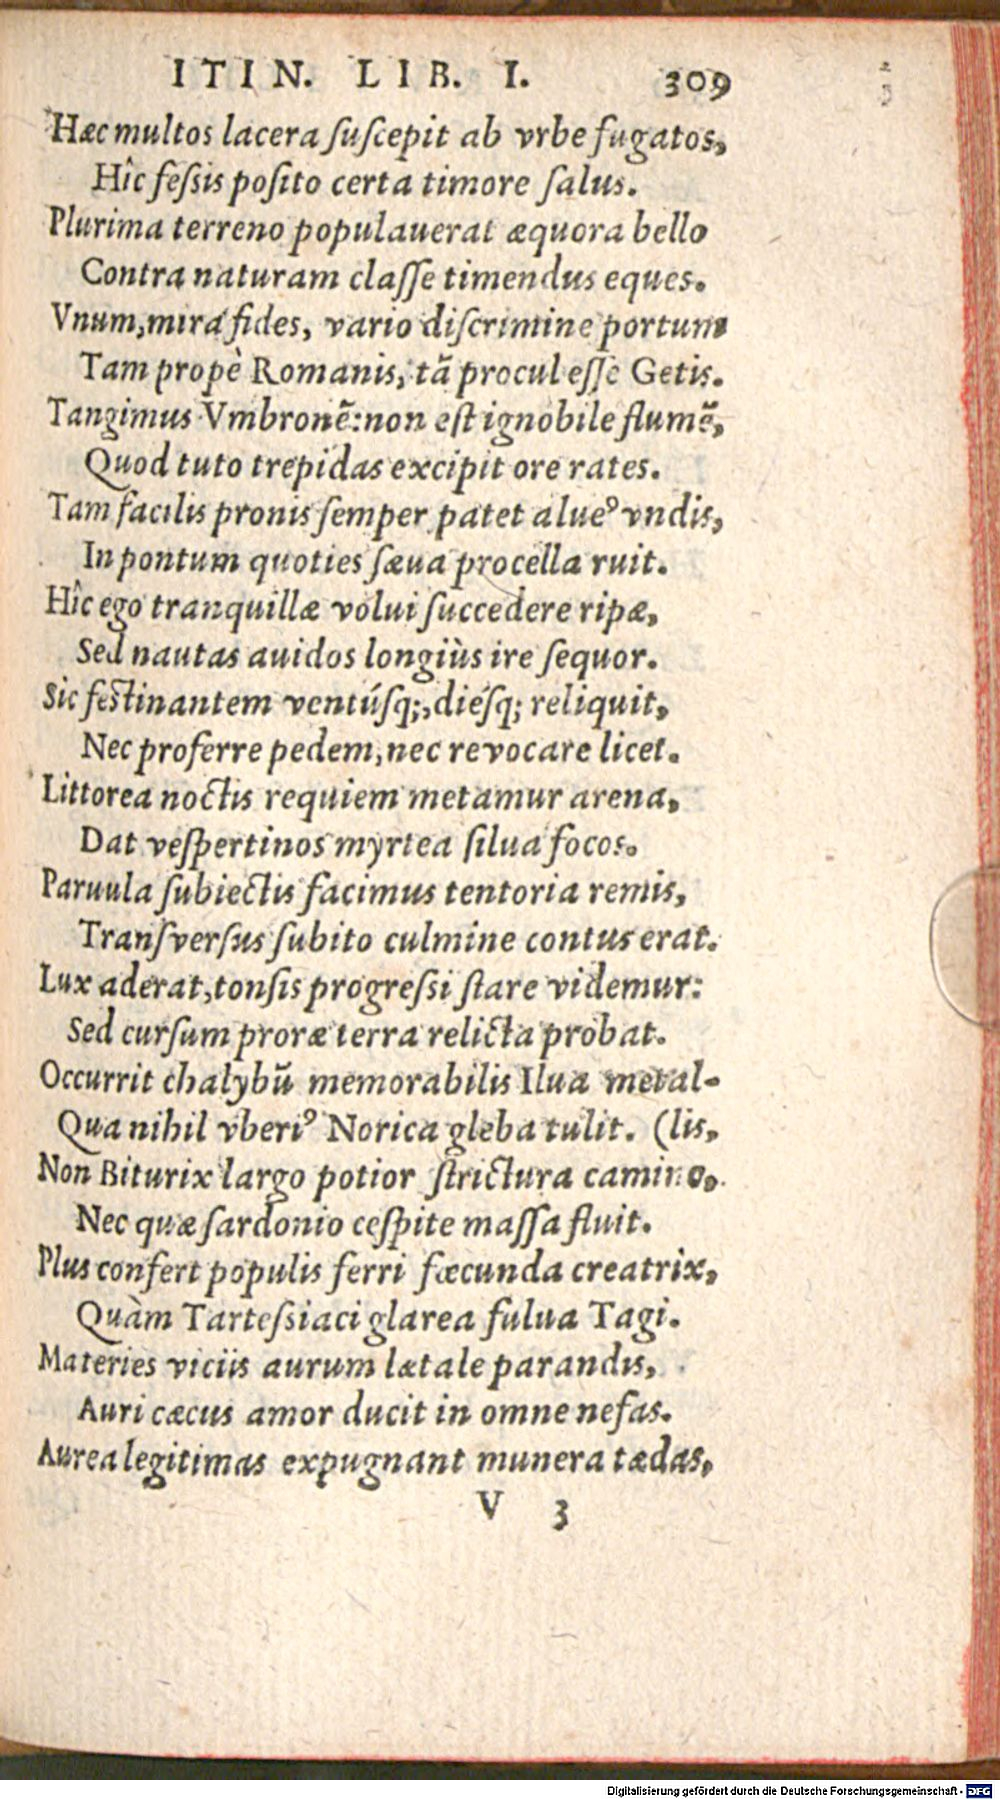 ITIN. LIB. I. 309
Hæc multos lacera ſuſcepit ab vrbe fugatos,
Hîc feſsis poſito certa timore ſalus.
Plurima terreno populauerat æquora bello
Contra naturam claſſe timendus eques.
Vnum, mira fides, vario diſcrimine portum
Tam propè Romanis, tā procul eſſe Getis.
Tangimus Vmbronē: non eſt ignobile flumē,
Quod tuto trepidas excipit ore rates.
Tam facilis pronis ſemper patet alueꝰ vndis,
In pontum quoties ſæua procella ruit.
Hîc ego tranquillæ volui ſuccedere ripæ,
Sed nautas auidos longiùs ire ſequor.
Sic feſtinantem ventúſq;, diéſq; reliquit,
Nec proferre pedem, nec revocare licet.
Littorea noctis requiem metamur arena,
Dat veſpertinos myrtea ſilua focos.
Paruula ſubiectis facimus tentoria remis,
Tranſverſus ſubito culmine contus erat.
Lux aderat, tonſis progreſsi ſtare videmur:
Sed curſum proræ terra relicta probat.
Occurrit chalybū memorabilis Ilua metal-
Qua nihil vberiꝰ Norica gleba tulit. (lis,
Non Biturix largo potior ſtrictura camino,
Nec quæ ſardonio ceſpite maſſa fluit.
Plus confert populis ferri fœcunda creatrix,
Quàm Tarteſsiaci glarea fulua Tagi.
Materies viciis aurum lætale parandis,
Auri cæcus amor ducit in omne nefas.
Aurea legitimas expugnant munera tædas,
V 3
Digitalisierung gefördert durch die Deutsche Forschungsgemeinschaft - DFG